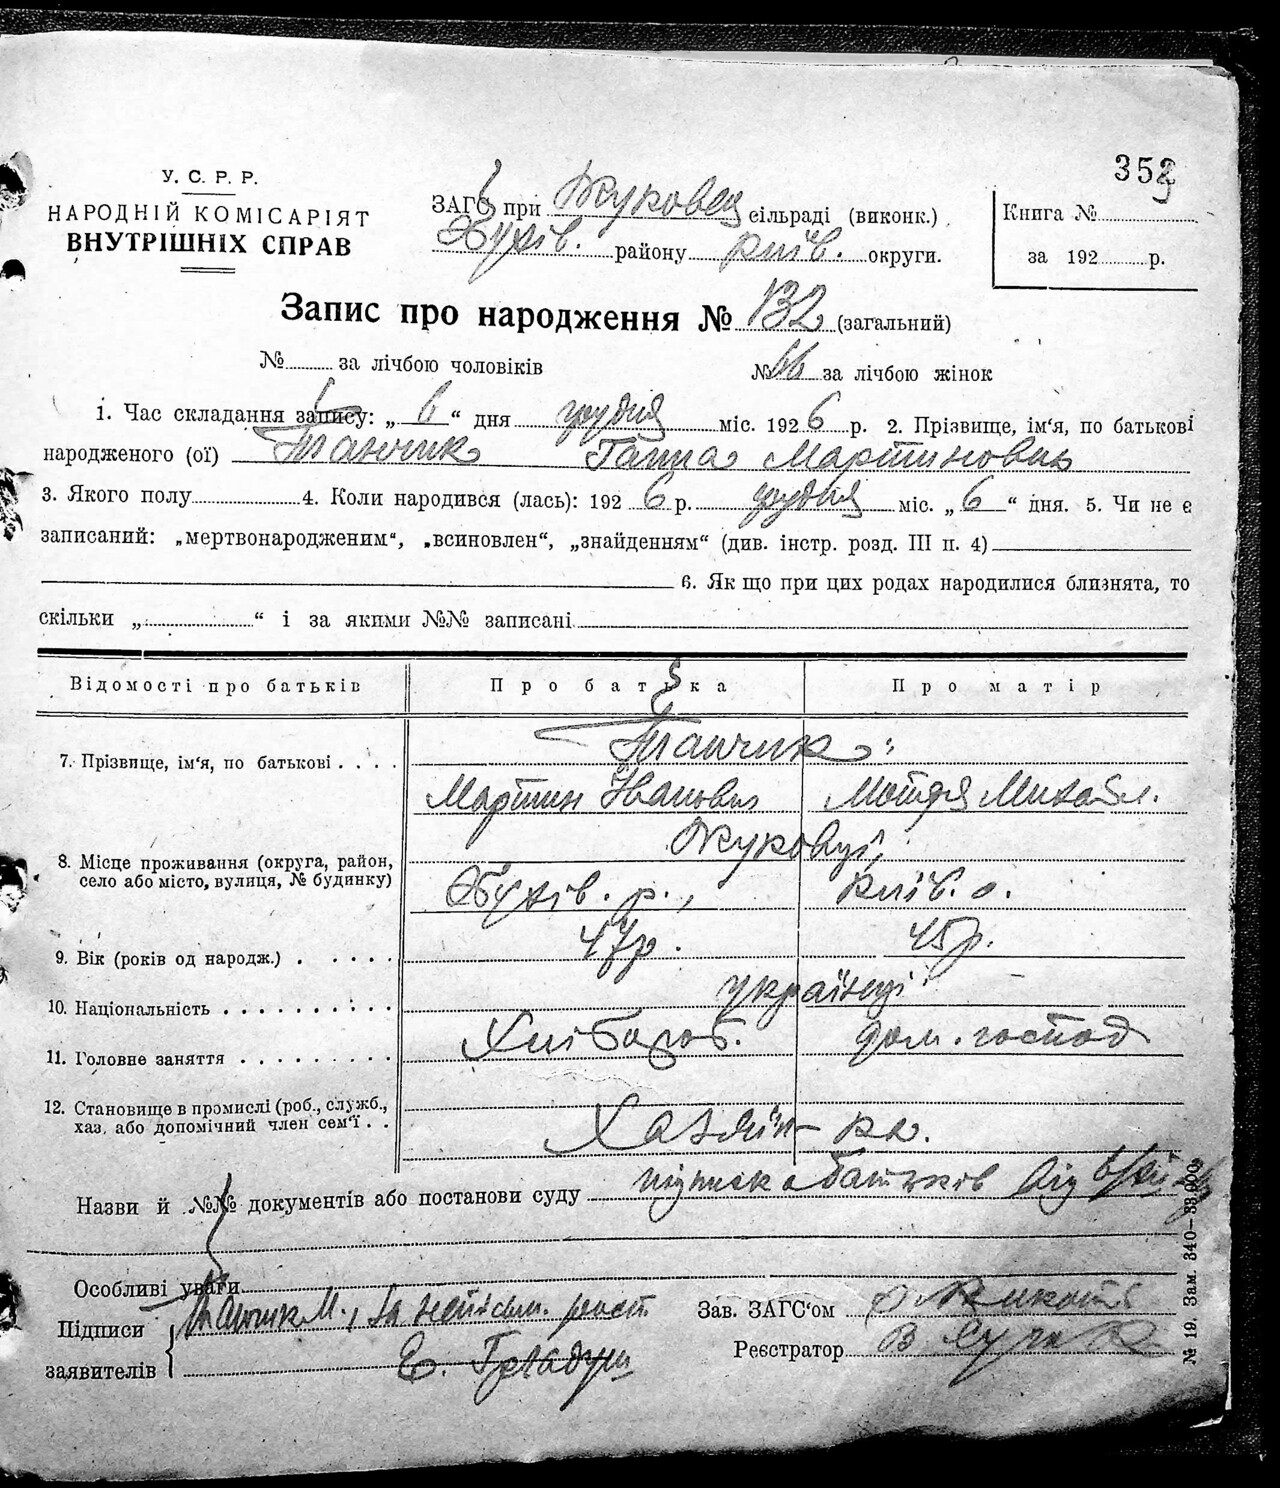 353
У. С. Р. Р.
НАРОДНІЙ КОМІСАРІЯТ
ВНУТРІШНІХ СПРАВ
ЗАГС при Жуковец сільраді (виконк.)
Обухів. району Київ. округи.
Книга №
за 192 р.
Запис про народження № 132 (загальний)
№ за лічбою чоловіків № 66 за лічбою жінок
1. Час складання запису: „ 6 “ дня грудня міс. 1926 р. 2. Прізвище, ім'я, по батькові
народженого (ої) Танчик Ганна Мартиновна
3. Якого полу 4. Коли народився (лась): 192 6 р. грудня міс. „ 6 “ дня. 5. Чи не є
записаний: „мертвонародженим“, „всиновлен“, „знайденням“ (див. інстр. розд. III п. 4)
6. Як що при цих родах народилися близнята, то
скільки „ “ і за якими №№ записані
Відомості про батьків Про батька Про матір
7. Прізвище, ім'я, по батькові Танчик
Мартин Іванович Мотря Михайл.
8. Місце проживання (округа, район,
село або місто, вулиця, № будинку)
Жуковці,
Обухів. р., Київ. о.
9. Вік (років од народж.) 47р. 45р.
10. Національність українці
11. Головне заняття Хлібороб. дом. господ
12. Становище в промислі (роб., служб.,
хаз. або допомічний член сем'ї
Хазяїн - ка.
Назви й №№ документів або постанови суду підписка батьків від
Особливі уваги
Підписи
заявителів
Танчик М., за неписьм. розп
Е. Гладуш
Зав. ЗАГС'ом
Реєстратор В
№ 19. Зам. 340—33.000.